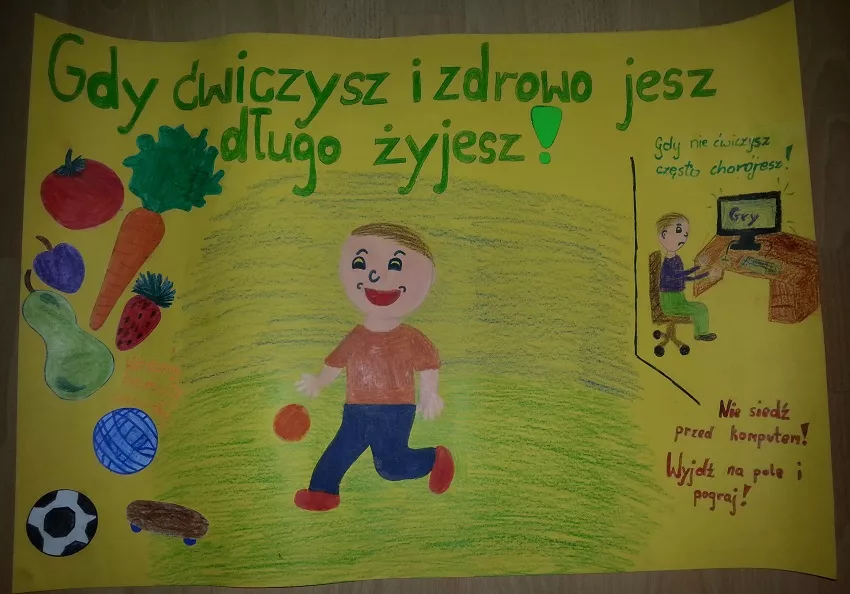 Gdy ćwiczysz i zdrowo jesz
długo żyjesz!
Gdy nie ćwiczysz
często chorójesz!
Gry
Nie siedź
przed komputem!
Wyjdź na pole i
pograj!